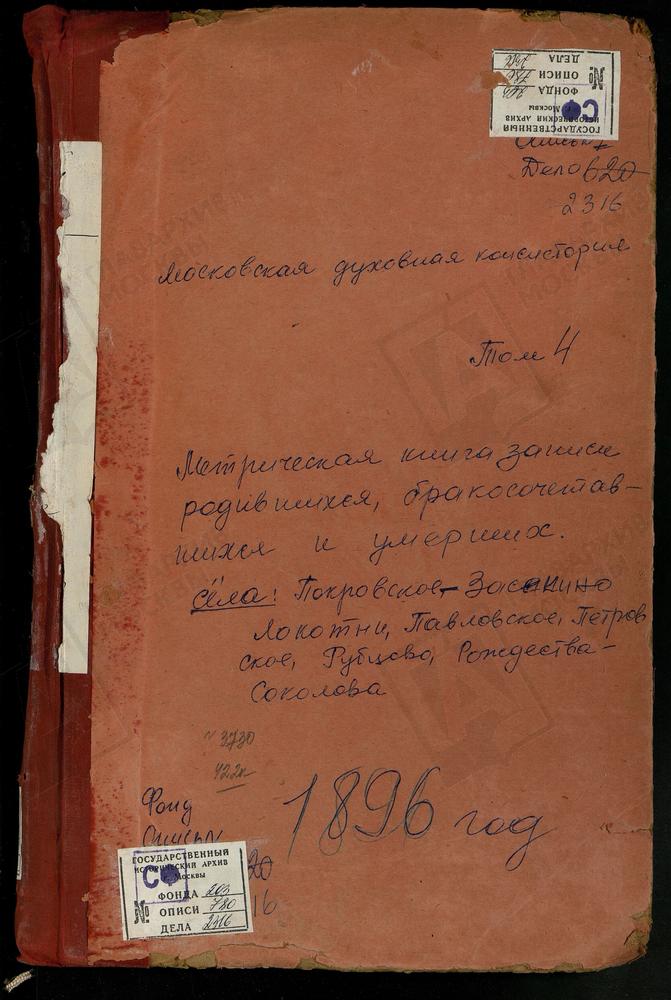 ГОСУДАРСТВЕННЫЙ
ИСТОРИЧЕСКИЙ АРХИВ
г. Москвы
СФ
ФОНДА 203
№ ОПИСИ 780
ДЕЛА 2316
Опись
Дело 620
2316
Московская духовная консистория
Том 4
Метрическая книга записи
родившихся, бракосочетав-
шихся и умерших.
сёла: Покровское-Засекино
Локотни, Павловское, Петров
ское, Рубцово, Рождества-
Соколова
3730
422л
1896 год
Фонд
Опись
20
16
ГОСУДАРСТВЕННЫЙ
ИСТОРИЧЕСКИЙ АРХИВ
г. Москвы
СФ
ФОНДА 203
№ ОПИСИ 780
ДЕЛА 2316